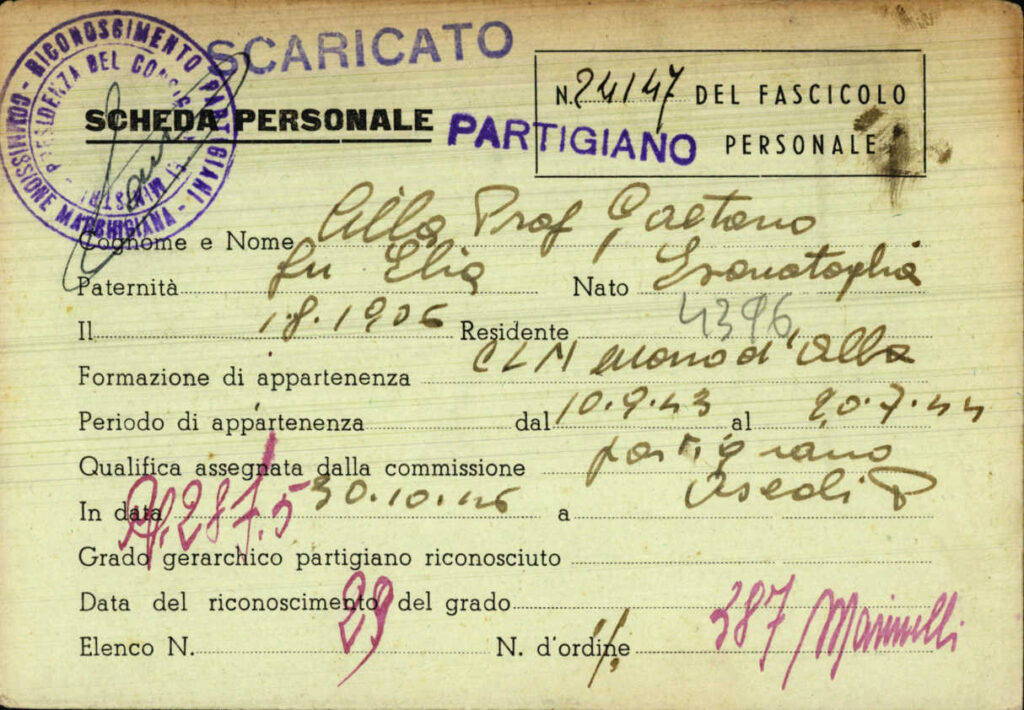 COMMISSIONE MARCHIGIANA - RICONOSCIMENTO PARTIGIANI -
PRESIDENZA DEL MINISTRI
SCARICATO
N. 24147 DEL FASCICOLO
SCHEDA PERSONALE
PARTIGIANO
PERSONALE
Cognome e Nome Prof Gaetano
Paternità fu Elia Nato Esanatoglia
Il 1.8.1906 Residente 4396
Formazione di appartenenza CLN d'Alba
Periodo di appartenenza dal 10.9.43 al 20.7.44
Qualifica assegnata dalla commissione partigiano
In data 30.10.46 a Ascoli P
287.5
Grado gerarchico partigiano riconosciuto
Data del riconoscimento del grado
Elenco N. 29 N. d'ordine 387 Marinelli